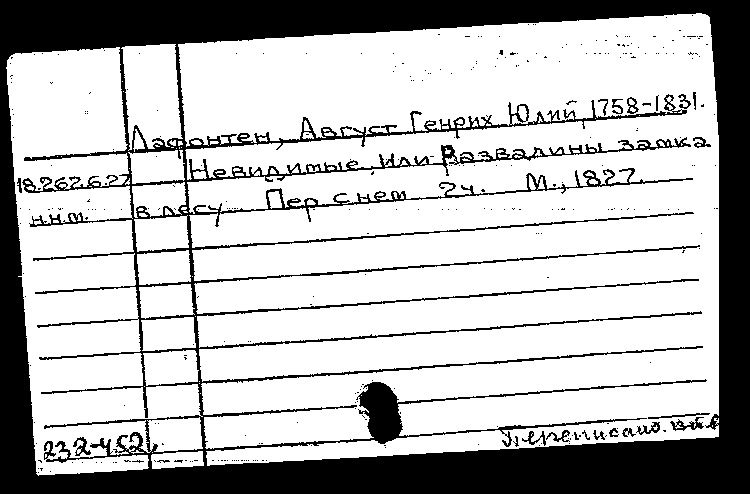 Лафонтен, Август Генрих Юлий, 1758-1831.
18.262.6.27 Невидимые, или Развалины замка
н.н.т. в лесу. Пер. с нем. 2ч. М., 1827.
232-452
Переписано.